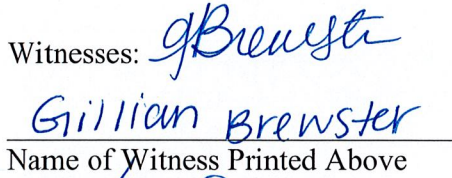 Witnesses: GBrewster
Gillian Brewster
Name of Witness Printed Above